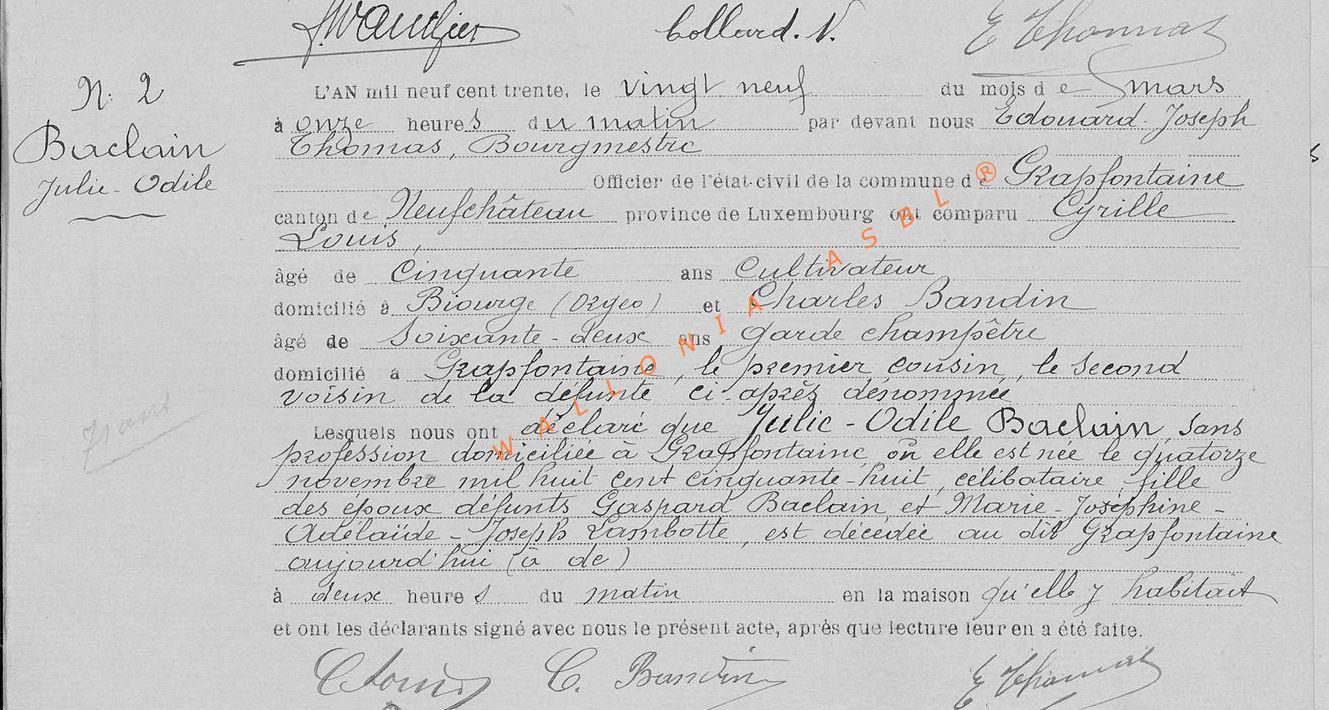 Collard. V.
E Thomas
N: 2
Baclain
Julie-Odile
L'AN mil neuf cent trente, le vingt neuf du mois de mars
à onze heures du matin par devant nous Edouard-Joseph
Thomas, Bourgmestre
Officier de l'état-civil de la commune de Grapfontaine
canton de Neufchâteau province de Luxembourg ont comparu Cyrille
Louis,
âgé de Cinquante ans Cultivateur
domicilié à Biourge (Orgeo) et Charles Bandin
âgé de Soixante-deux ans garde champêtre
domicilié à Grapfontaine, le premier cousin, le second
voisin de la défunte ci-après dénommée
Lesquels nous ont déclaré que Julie-Odile Baclain, sans
profession domiciliée à Grapfontaine, où elle est née le quatorze
novembre mil huit cent cinquante-huit, célibataire fille
des époux défunts Gaspard Baclain et Marie-Joséphine-
Adélaïde-Joseph Lambotte, est décédée au dit Grapfontaine
aujourd'hui (à de)
à deux heures du matin en la maison qu'elle y habitait
et ont les déclarants signé avec nous le présent acte, après que lecture leur en a été faite.
C Louis C. Bandin E Thomas
WALLONIA ASBL ®